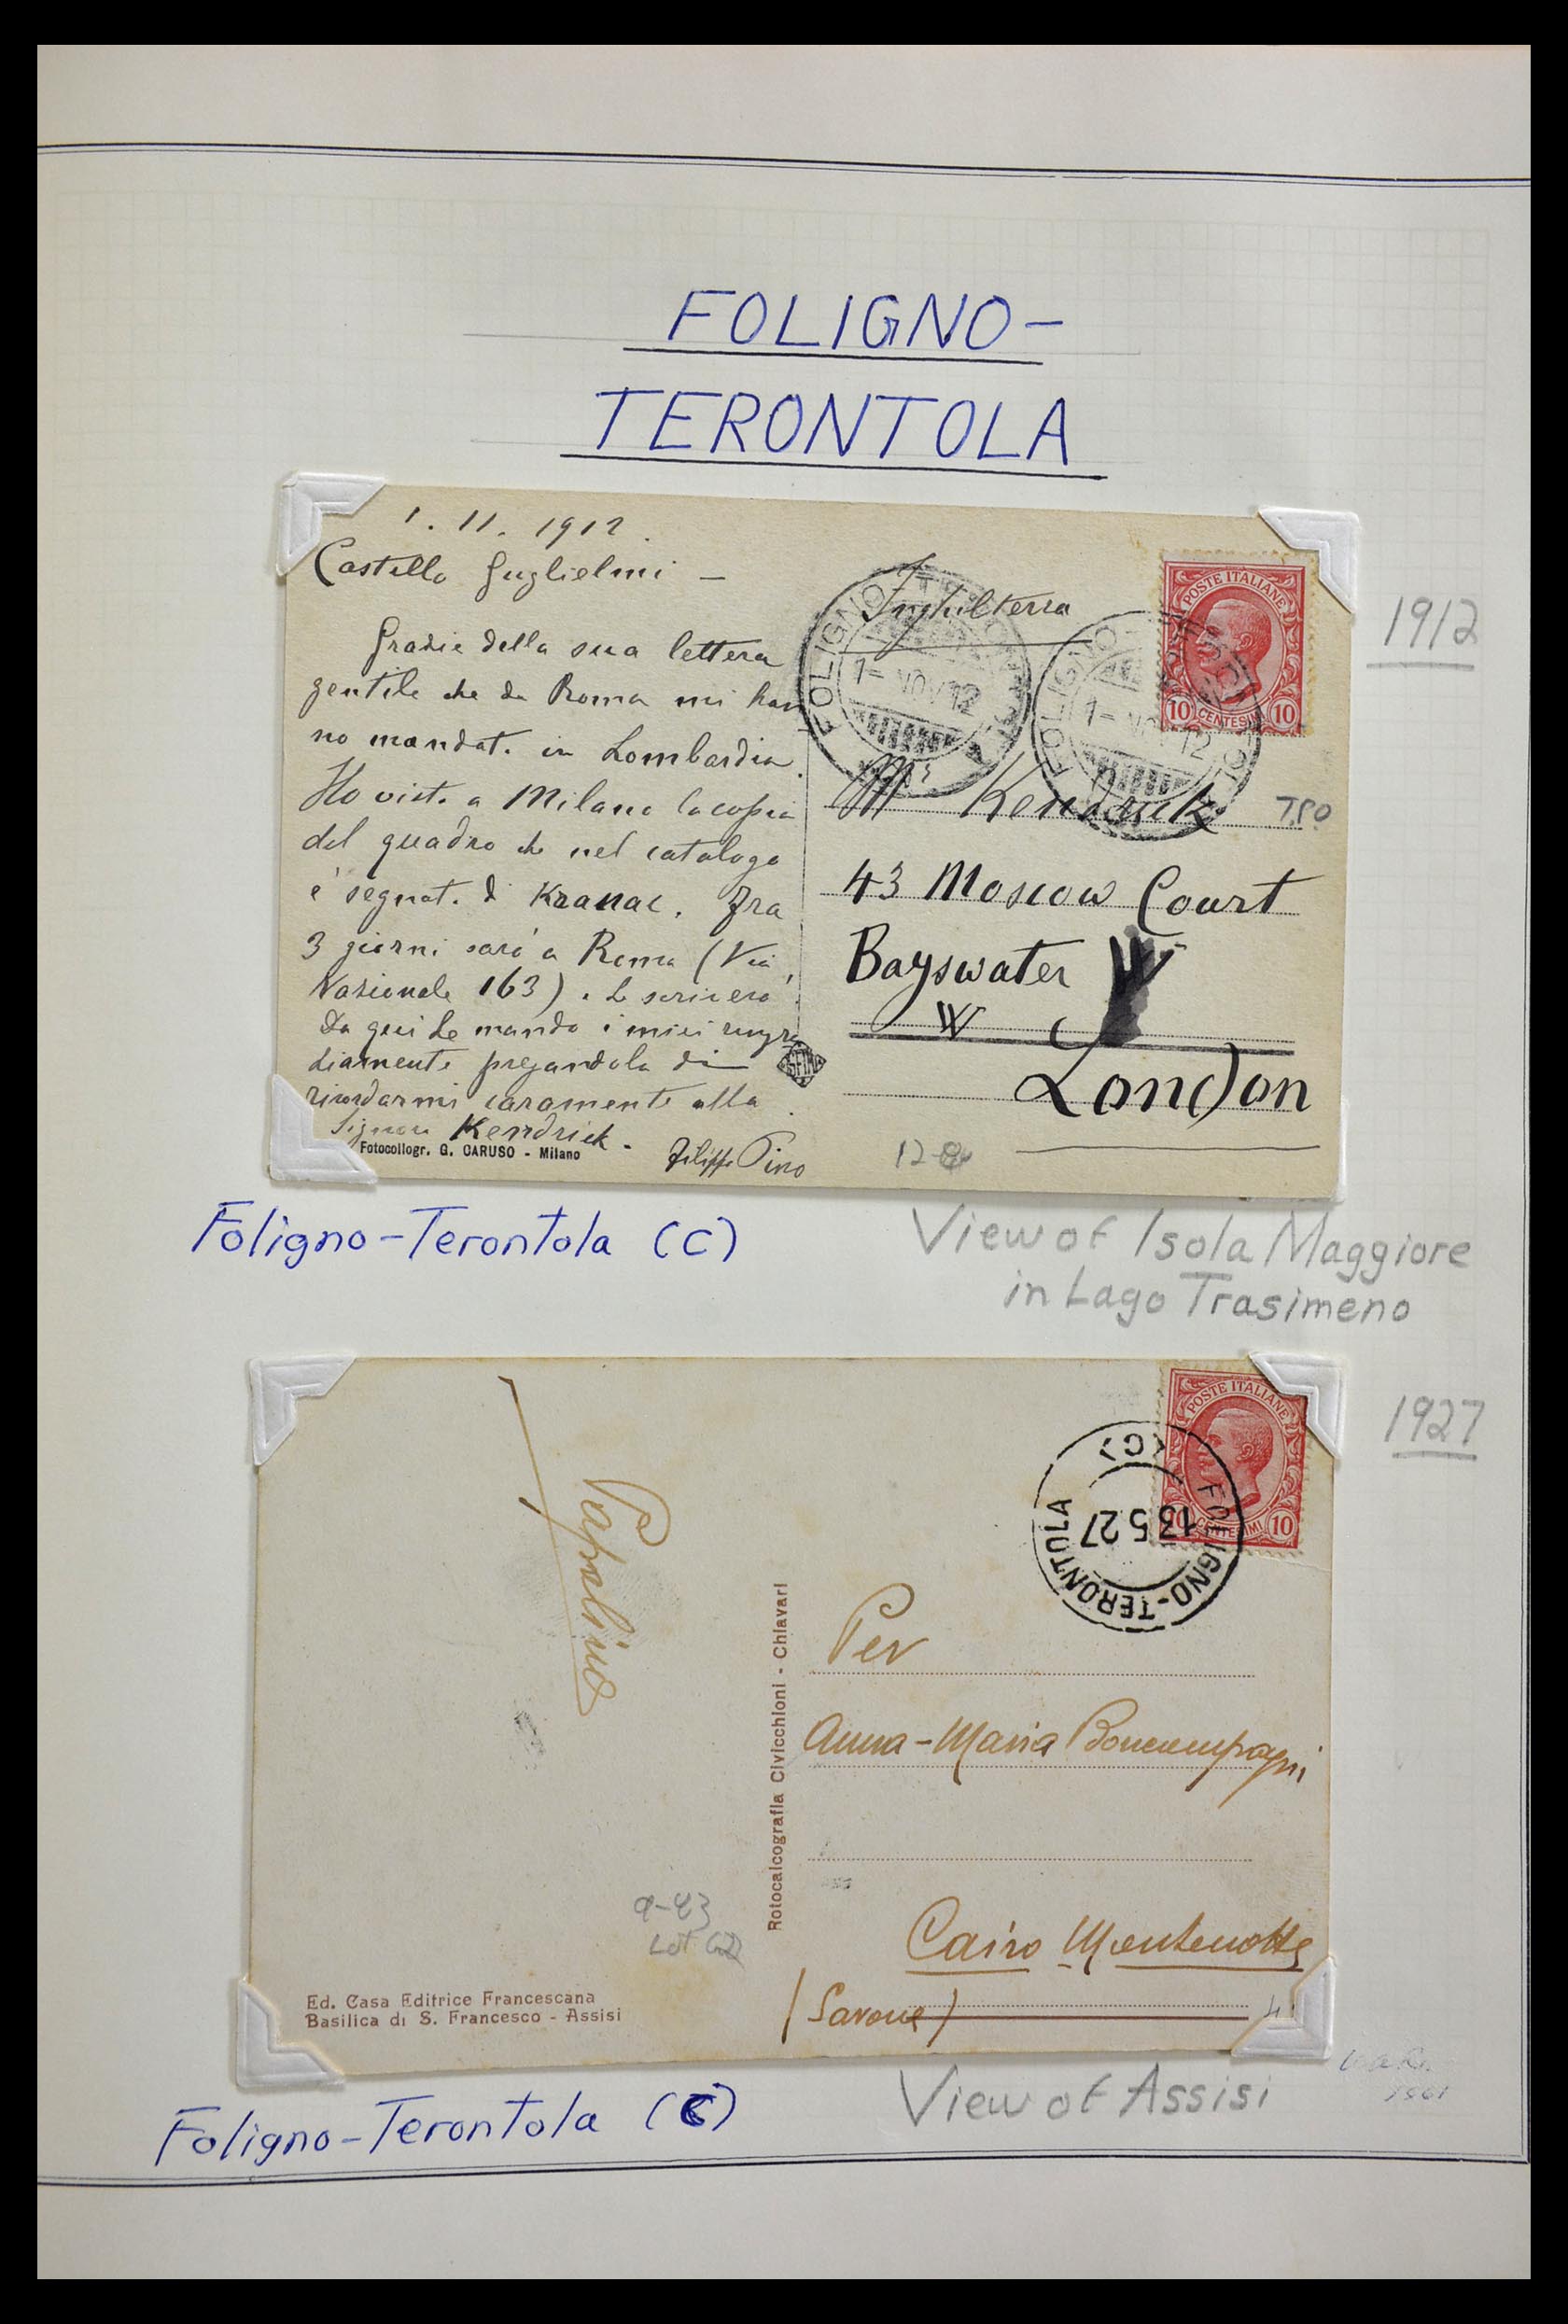 FOLIGNO-
TERONTOLA
1. 11. 1912.
Castello Guglielmi –
Grazie della sua lettera
gentile che da Roma mi han
no mandat. in Lombardia.
Ho vist. a Milano la copia
del quadro che nel catalogo
è segnat. di Kranac. Fra
3 giorni sarò a Roma (Via
Nazionale 163). Le scriverò
Da qui Le mando i miei ringra
ziamenti pregandola di
ricordarmi caramente alla
Signora Kendrick.
Filippo Pino
Fotocollogr. G. CARUSO - Milano
SFIM
Inghilterra
POSTE ITALIANE
10 CENTESIMI 10
FOLIGNO-T
1 = NOV 12
FOLIGNO-
1 = NOV 12
Mr Kendrick
TPO
43 Moscow Court
Bayswater
W
London
12-8
1912
Foligno-Terontola (C)
View of Isola Maggiore
in Lago Trasimeno
1927
POSTE ITALIANE
10 CENTESIMI 10
FOLIGNO-TERONTOLA
(C)
13 5 27
Papalino
Per
Anna-Maria Boncompagni
Cairo Montenotte
(Savona)
Rotocalcografia Civicchioni - Chiavari
9-83
Lot 62
Ed. Casa Editrice Francescana
Basilica di S. Francesco - Assisi
Foligno-Terontola (C)
View of Assisi